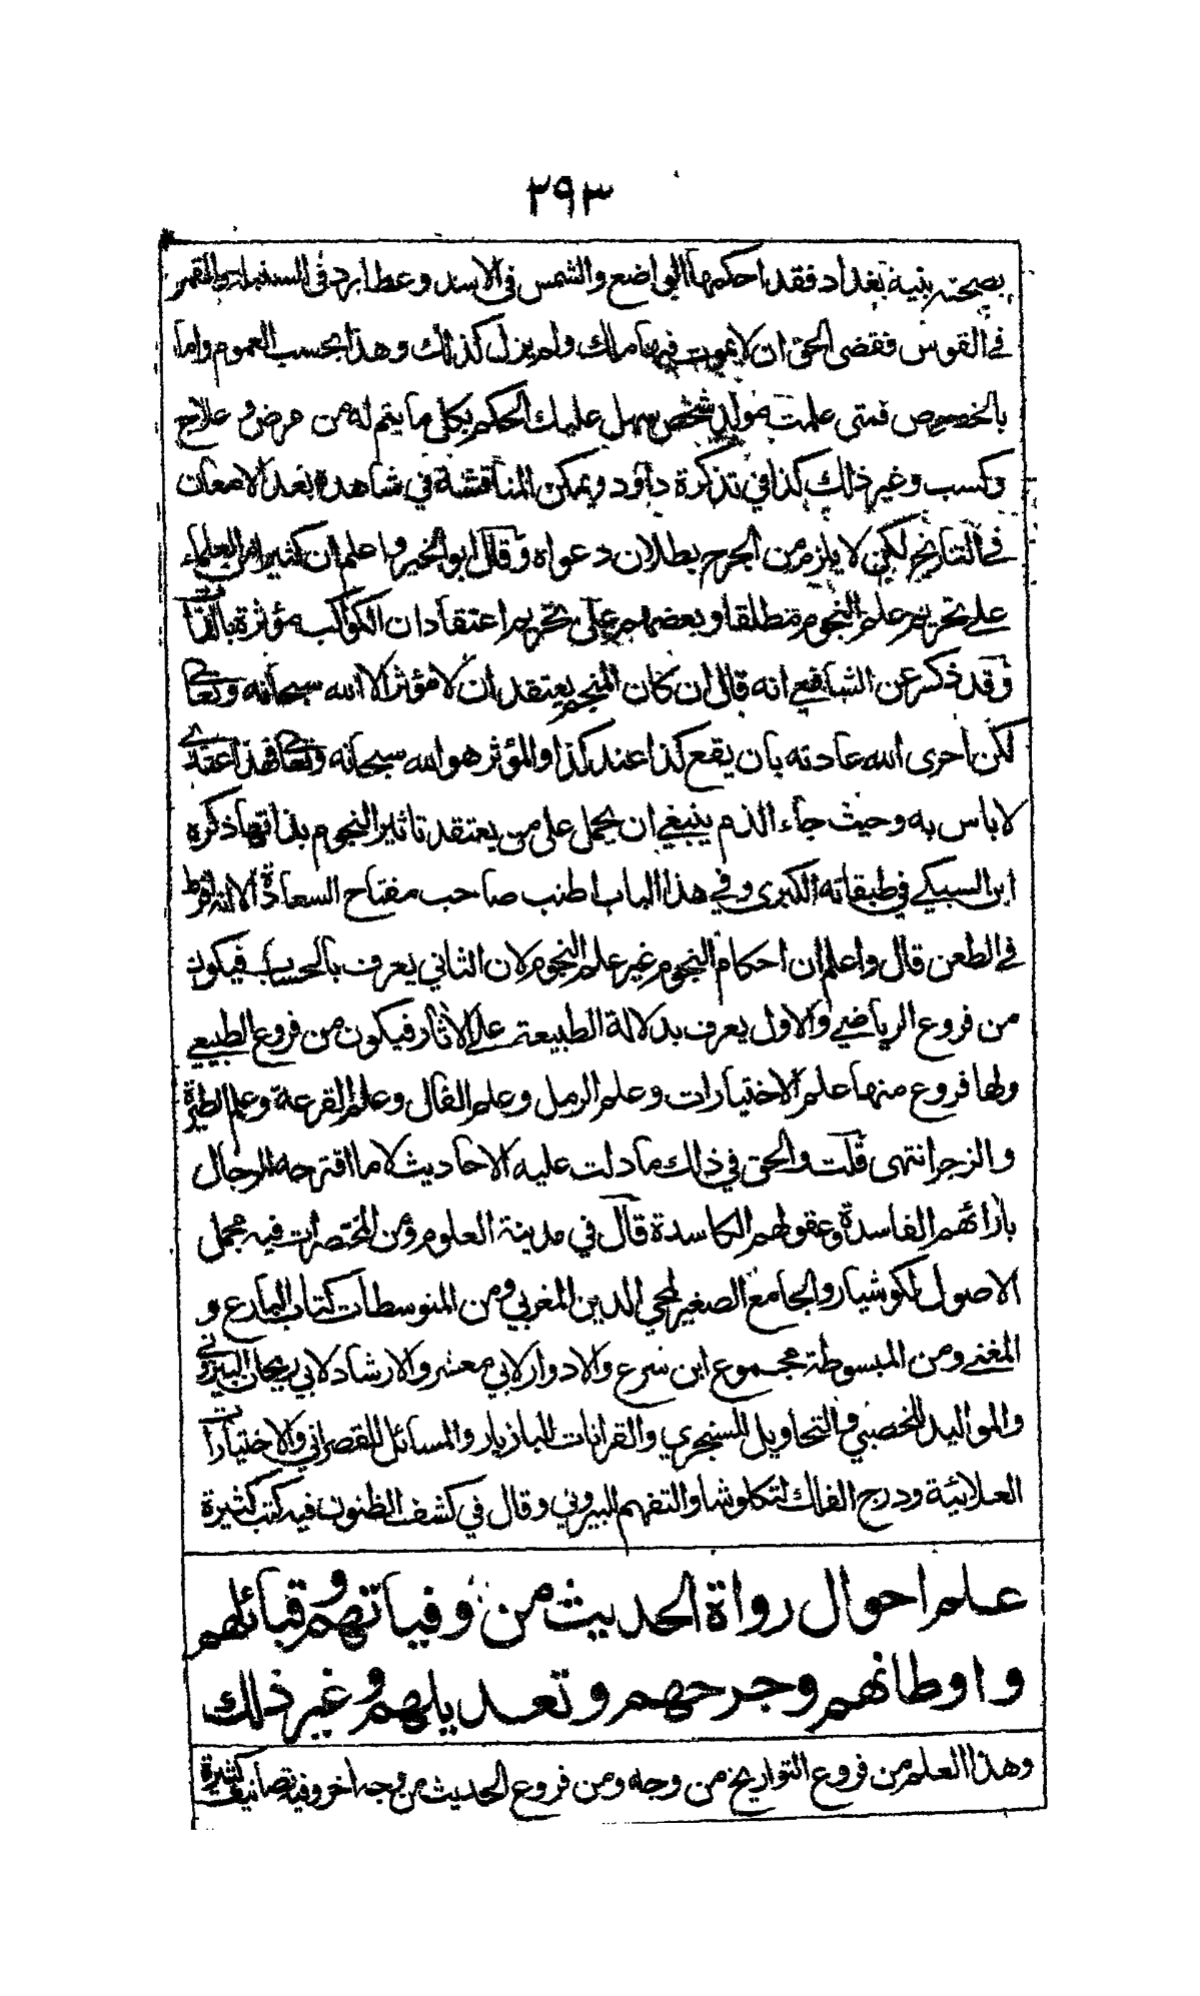 ٢٩٣
بصحته بنية بغداد فقد احكمها الواضع والشمس في الاسد وعطارد في السنبلة والقمر
في القوس فقضى الحق ان لا يموت فيها ملك ولم يزل كذلك وهذا بحسب العموم واما
بالخصوص فمتى علمت مولد شخص سهل عليك الحكم بكل ما يتم له من مرض وعلاج
وكسب وغير ذلك كذا في تذكرة داود ويمكن المناقشة في شاهده بعد الامعان
في التاريخ لكن لا يلزم من الجرح بطلان دعواه وقال ابو الخير واعلم ان كثيرا من العلماء
على تحريم علم النجوم مطلقا وبعضهم على تحريم اعتقاد ان الكواكب مؤثرة بالذات
وقد ذكر عن الشافعي انه قال ان كان المنجم يعتقد ان لا مؤثر الا الله سبحانه وتعالى
لكن اجرى الله عادته بان يقع كذا عند كذا والمؤثر هو الله سبحانه وتعالى فهذا عندي
لا باس به وحيث جاء الذم ينبغي ان يحمل على من يعتقد تاثير النجوم بذاتها ذكره
ابن السبكي في طبقاته الكبرى وفي هذا الباب اطنب صاحب مفتاح السعادة الا انه افرط
في الطعن قال واعلم ان احكام النجوم غير علم النجوم لان الثاني يعرف بالحساب فيكون
من فروع الرياضي والاول يعرف بدلالة الطبيعة على الاثار فيكون من فروع الطبيعي
ولها فروع منها علم الاختيارات وعلم الرمل وعلم الفال وعلم القرعة وعلم الطيرة
والزجر انتهى قلت والحق في ذلك ما دلت عليه الاحاديث لا ما اقترحه الرجال
بارائهم الفاسدة وعقولهم الكاسدة قال في مدينة العلوم ومن المختصرات فيه مجمل
الاصول لكوشيار والجامع الصغير لمحي الدين المغربي ومن المتوسطات كتاب البارع و
المغني ومن المبسوطة مجموع ابن شرع والادوار لابي معشر والارشاد لابي ريحان البيروني
والمواليد للخصبي والتحاويل للسنجري والقرانات للبازيار والمسائل للقصراني والاختيارات
العلائية ودرج الفلك لتنكلوشا والتفهيم للبيروني وقال في كشف الظنون فيه كتب كثيرة
علم احوال رواة الحديث من وفياتهم وقبائلهم
واوطانهم وجرحهم وتعديلهم وغير ذلك
وهذا العلم من فروع التواريخ من وجه ومن فروع الحديث من وجه اخر وفيه تصانيف كثيرة